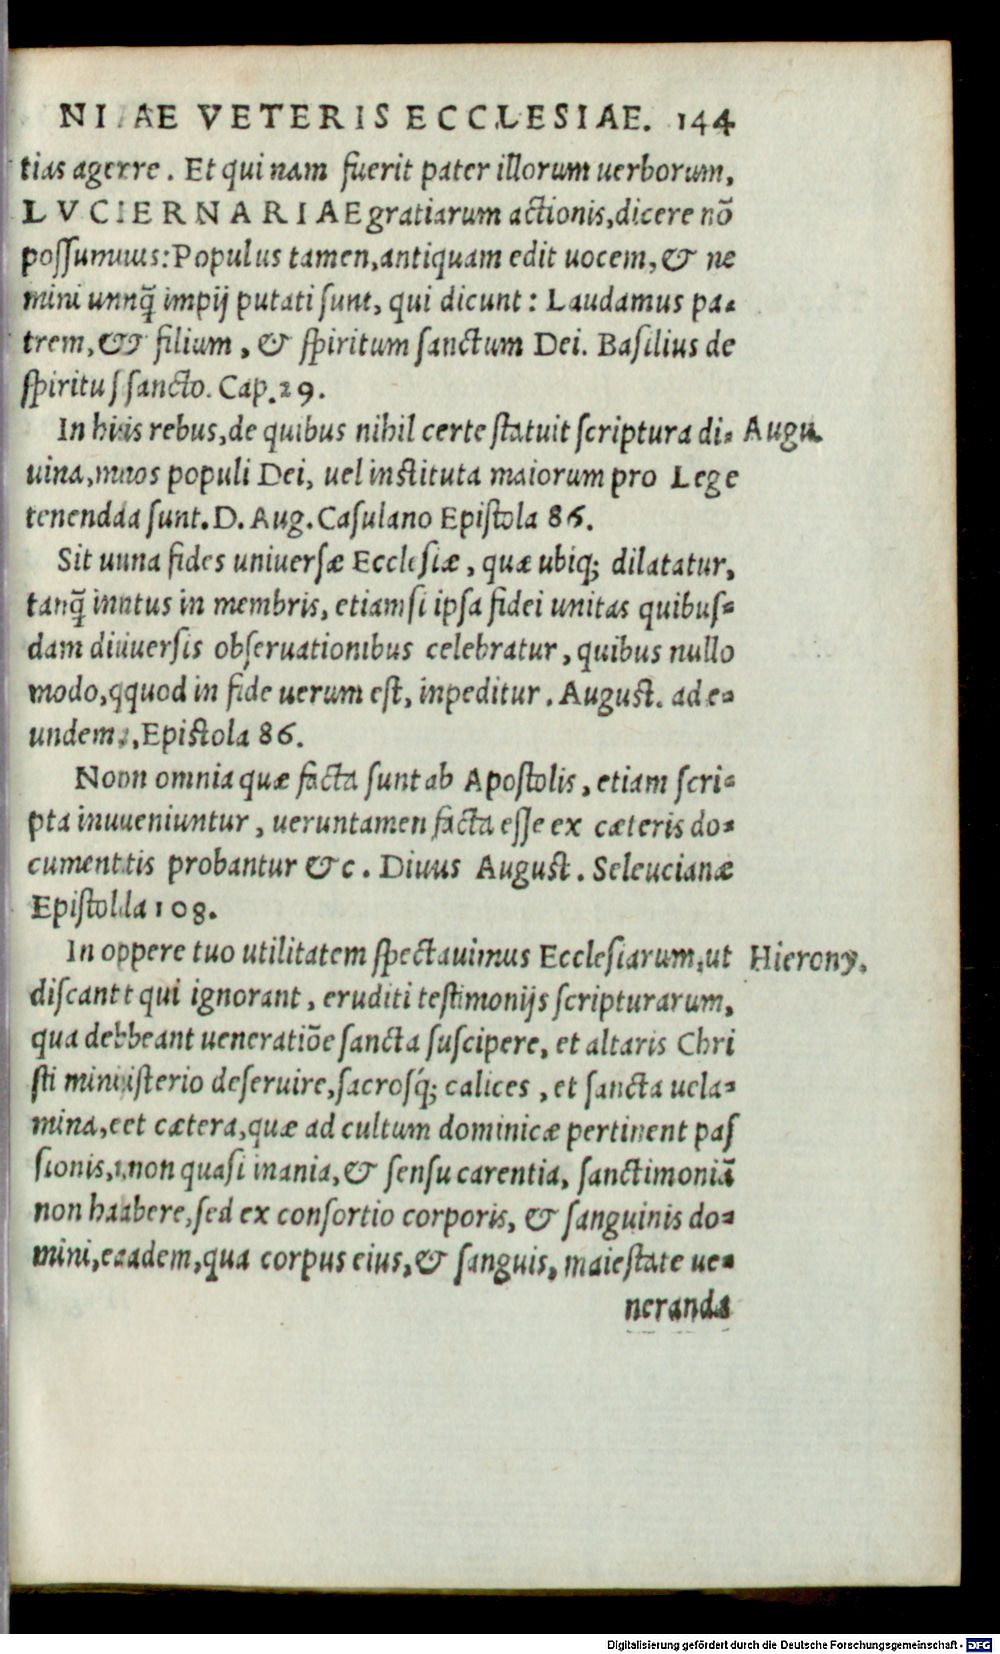 NIAE VETERIS ECCLESIAE. 144
tias agere. Et qui nam fuerit pater illorum uerborum,
LVCERNARIAE gratiarum actionis, dicere nõ
possumus: Populus tamen, antiquam edit uocem, & ne
mini unq̃ impij putati sunt, qui dicunt: Laudamus pa-
trem, & filium, & spiritum sanctum Dei. Basilius de
spiritu sancto. Cap. 29.
In his rebus, de quibus nihil certe statuit scriptura di- Augu.
uina, mos populi Dei, uel instituta maiorum pro Lege
tenenda sunt. D. Aug. Casulano Epistola 86.
Sit una fides uniuersæ Ecclesiæ, quæ ubiq; dilatatur,
tanq̃ intus in membris, etiamsi ipsa fidei unitas quibus-
dam diuersis obseruationibus celebratur, quibus nullo
modo, quod in fide uerum est, inpeditur. August. ad e-
undem, Epistola 86.
Non omnia quæ facta sunt ab Apostolis, etiam scri-
pta inueniuntur, ueruntamen facta esse ex cæteris do-
cumentis probantur &c. Diuus August. Seleucianæ
Epistola 108.
In opere tuo utilitatem spectauimus Ecclesiarum, ut Hierony.
discant qui ignorant, eruditi testimonijs scripturarum,
qua debeant ueneratiõe sancta suscipere, et altaris Chri
sti ministerio deseruire, sacrosq́; calices, et sancta uela-
mina, et cætera, quæ ad cultum dominicæ pertinent pas
sionis, non quasi inania, & sensu carentia, sanctimoniã
non habere, sed ex consortio corporis, & sanguinis do-
mini, eadem, qua corpus eius, & sanguis, maiestate ue-
neranda
Digitalisierung gefördert durch die Deutsche Forschungsgemeinschaft - DFG